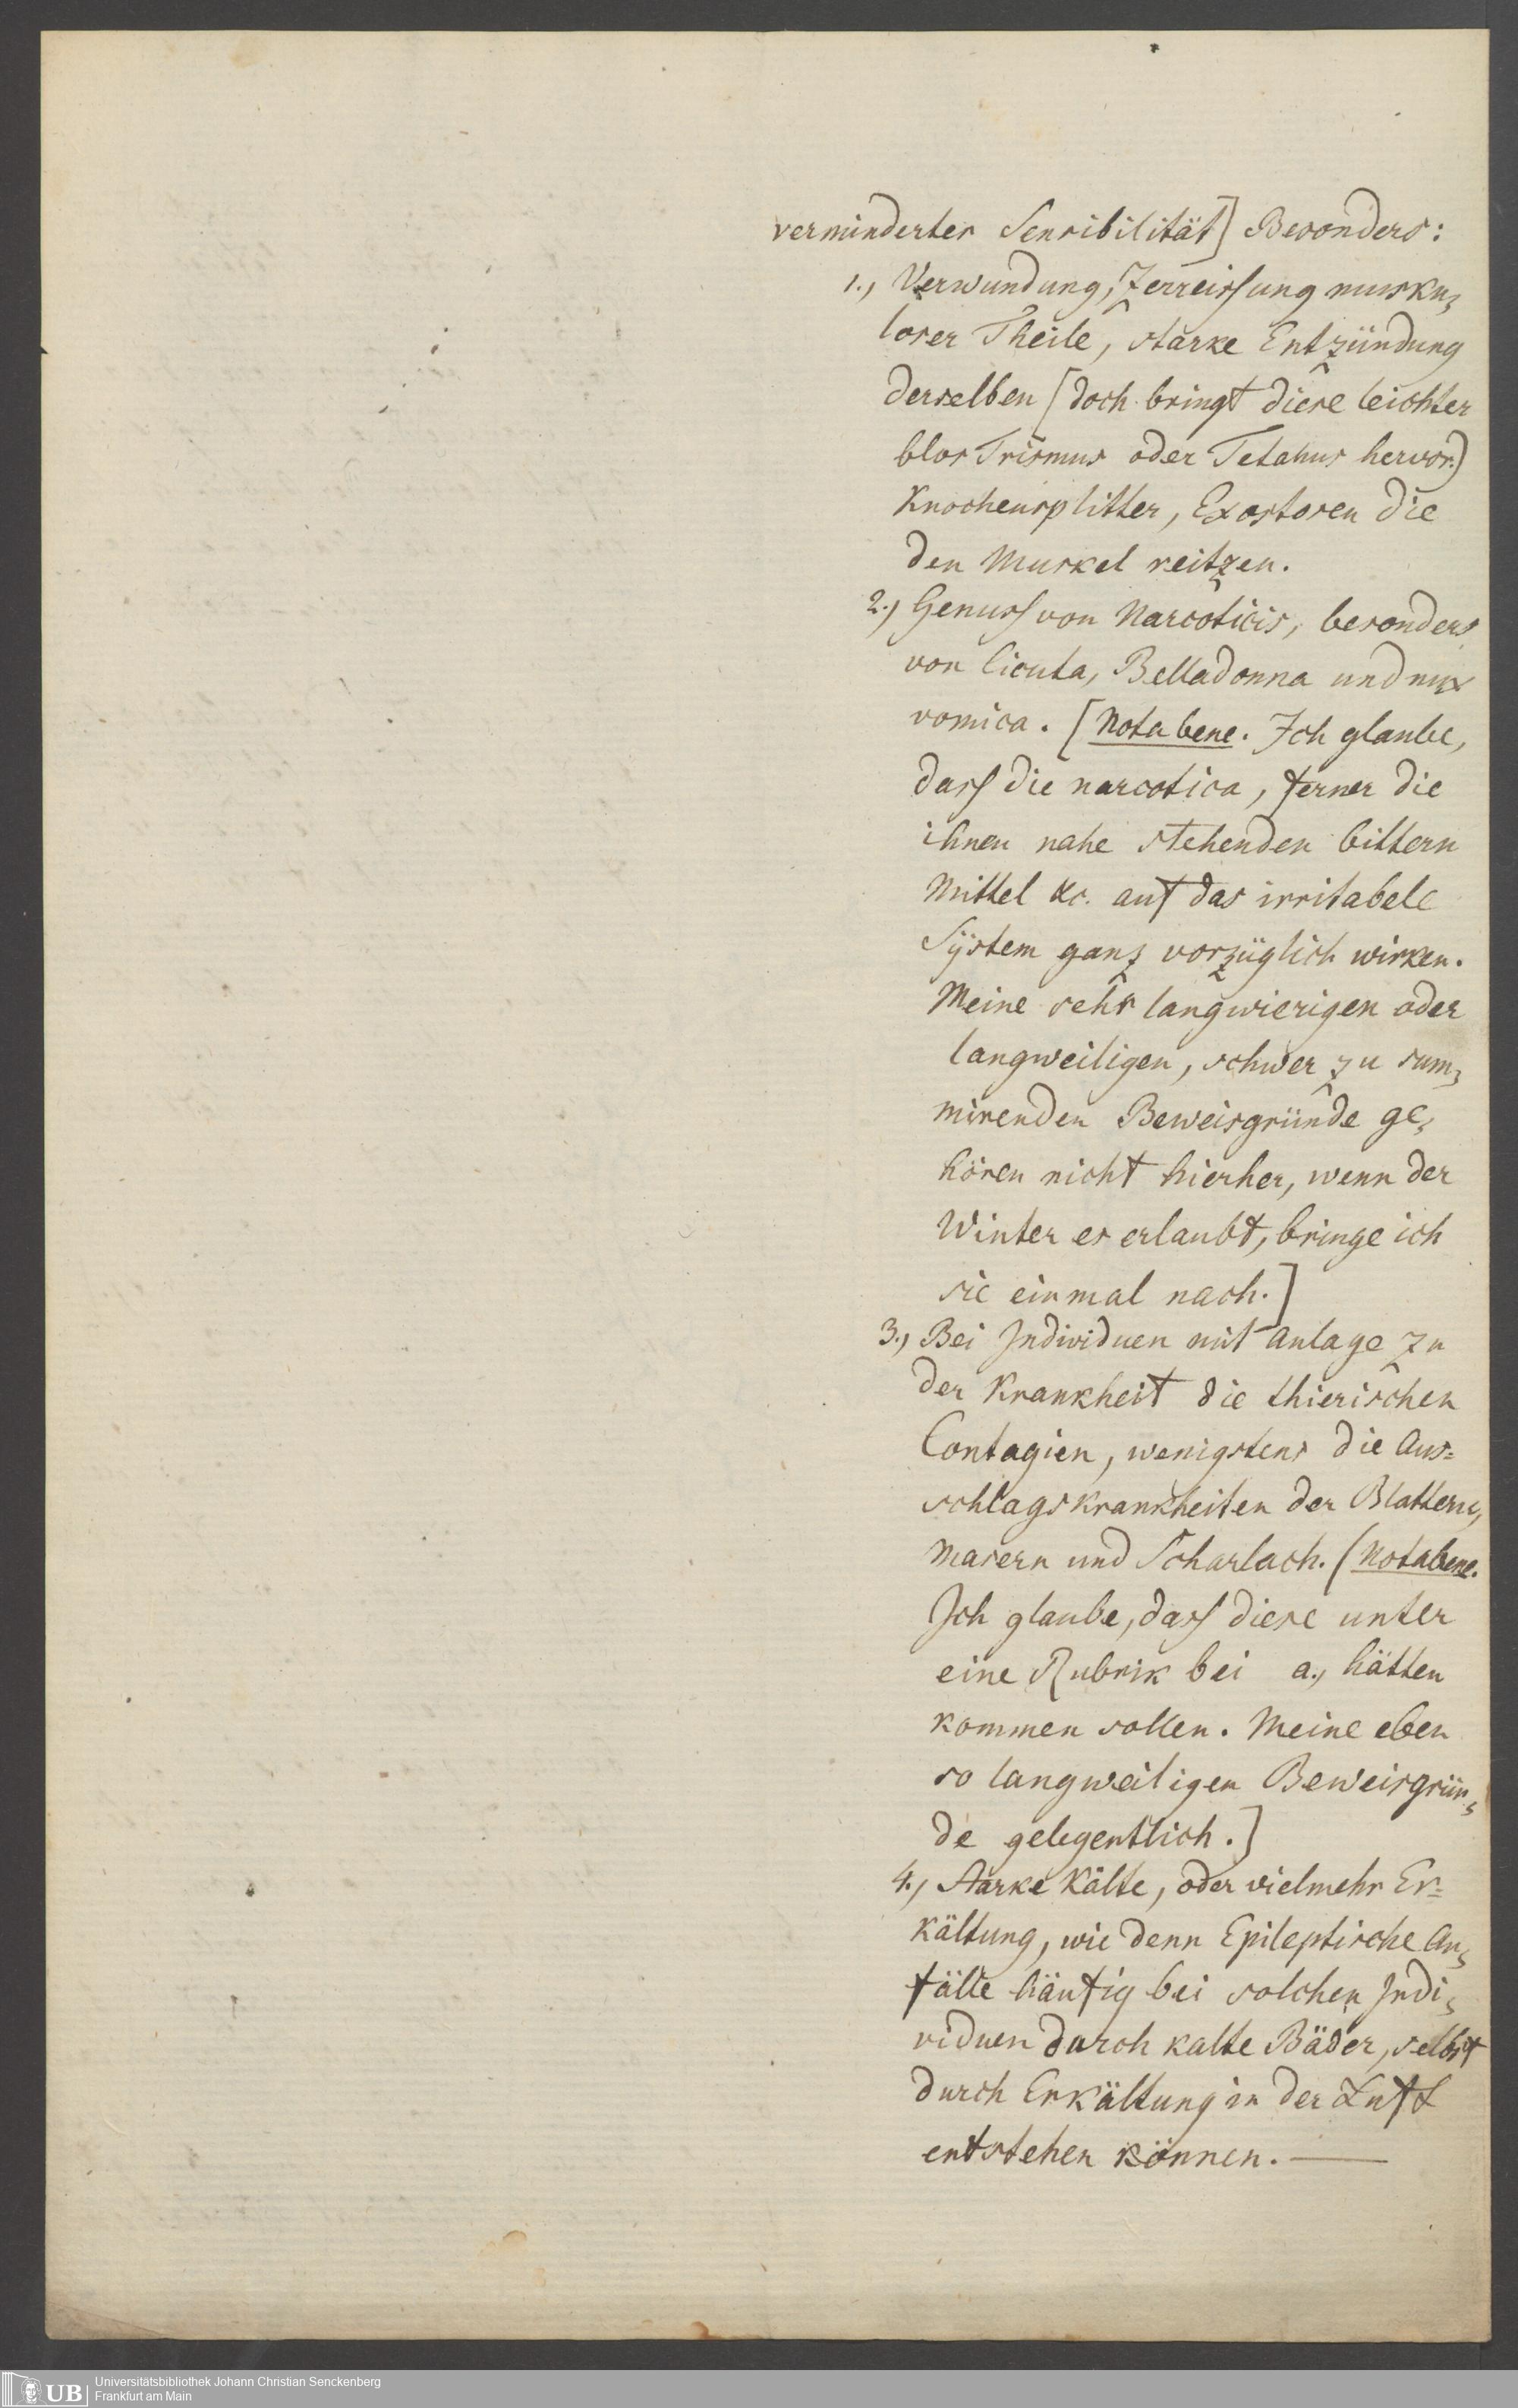 verminderter Sensibilität] Besonders:
1., Verwundung, Zerreissung musku,
loser Theile, starke Entzündung
derselben [doch bringt diese leichter
blos Trismus oder Tetanus hervor.)
Knochensplitter, Exostosen die
den Muskel reitzen.
2., Genuss von Narcoticis, besonders
von Cicuta, Belladonna und nux
vomica. [Nota bene. Ich glaube,
dass die narcotica, ferner die
ihnen nahe stehenden bittern
Mittel &c. auf das irritabele
Sÿstem ganz vorzüglich wirken.
Meine sehr langwierigen oder
langweiligen, schwer zu sum,
mirenden Beweisgründe ge,
hören nicht hierher, wenn der
Winter es erlaubt, bringe ich
sie einmal nach.]
3., Bei Individuen mit Anlage zu
der Krankheit die thierischen
Contagien, wenigstens die Aus=
schlagskrankheiten der Blattern,
Masern und Scharlach. (Notabene.
Ich glaube, dass diese unter
eine Rubrik bei a., hätten
kommen sollen. Meine eben
so langweiligen Beweisgrün,
de gelegentlich.]
4., Starke Kälte, oder vielmehr Er=
kältung, wie denn Epileptische An,
fälle häufig bei solchen Indi,
viduen durch kalte Bäder, selbst
durch Erkältung in der Luft
entstehen können. —
UB
Universitätsbibliothek Johann Christian Senckenberg
Frankfurt am Main